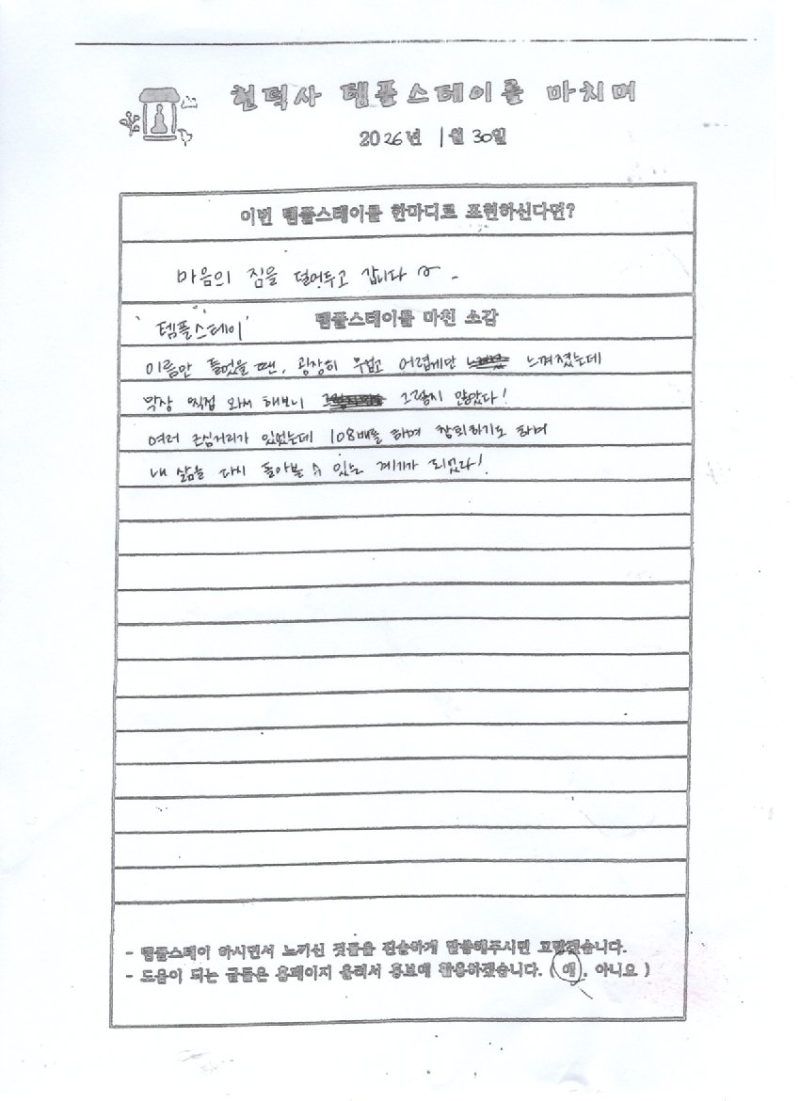 천덕사 템플스테이를 마치며
2026년 1월 30일
이번 템플스테이를 한마디로 표현하신다면?
마음의 짐을 덜어두고 갑니다~.
템플스테이를 마친 소감
'템플스테이'
이름만 들었을 땐, 굉장히 무겁고 어렵게만 느껴졌는데
막상 직접 와서 해보니 그렇지 않았다!
여러 근심거리가 있었는데 108배를 하며 참회하기도 하며
내 삶을 다시 돌아볼 수 있는 계기가 되었다!
- 템플스테이 하시면서 느끼신 것들을 진솔하게 말씀해주시면 고맙겠습니다.
- 도움이 되는 글들은 홈페이지 올려서 홍보에 활용하겠습니다. ( 예 , 아니요 )